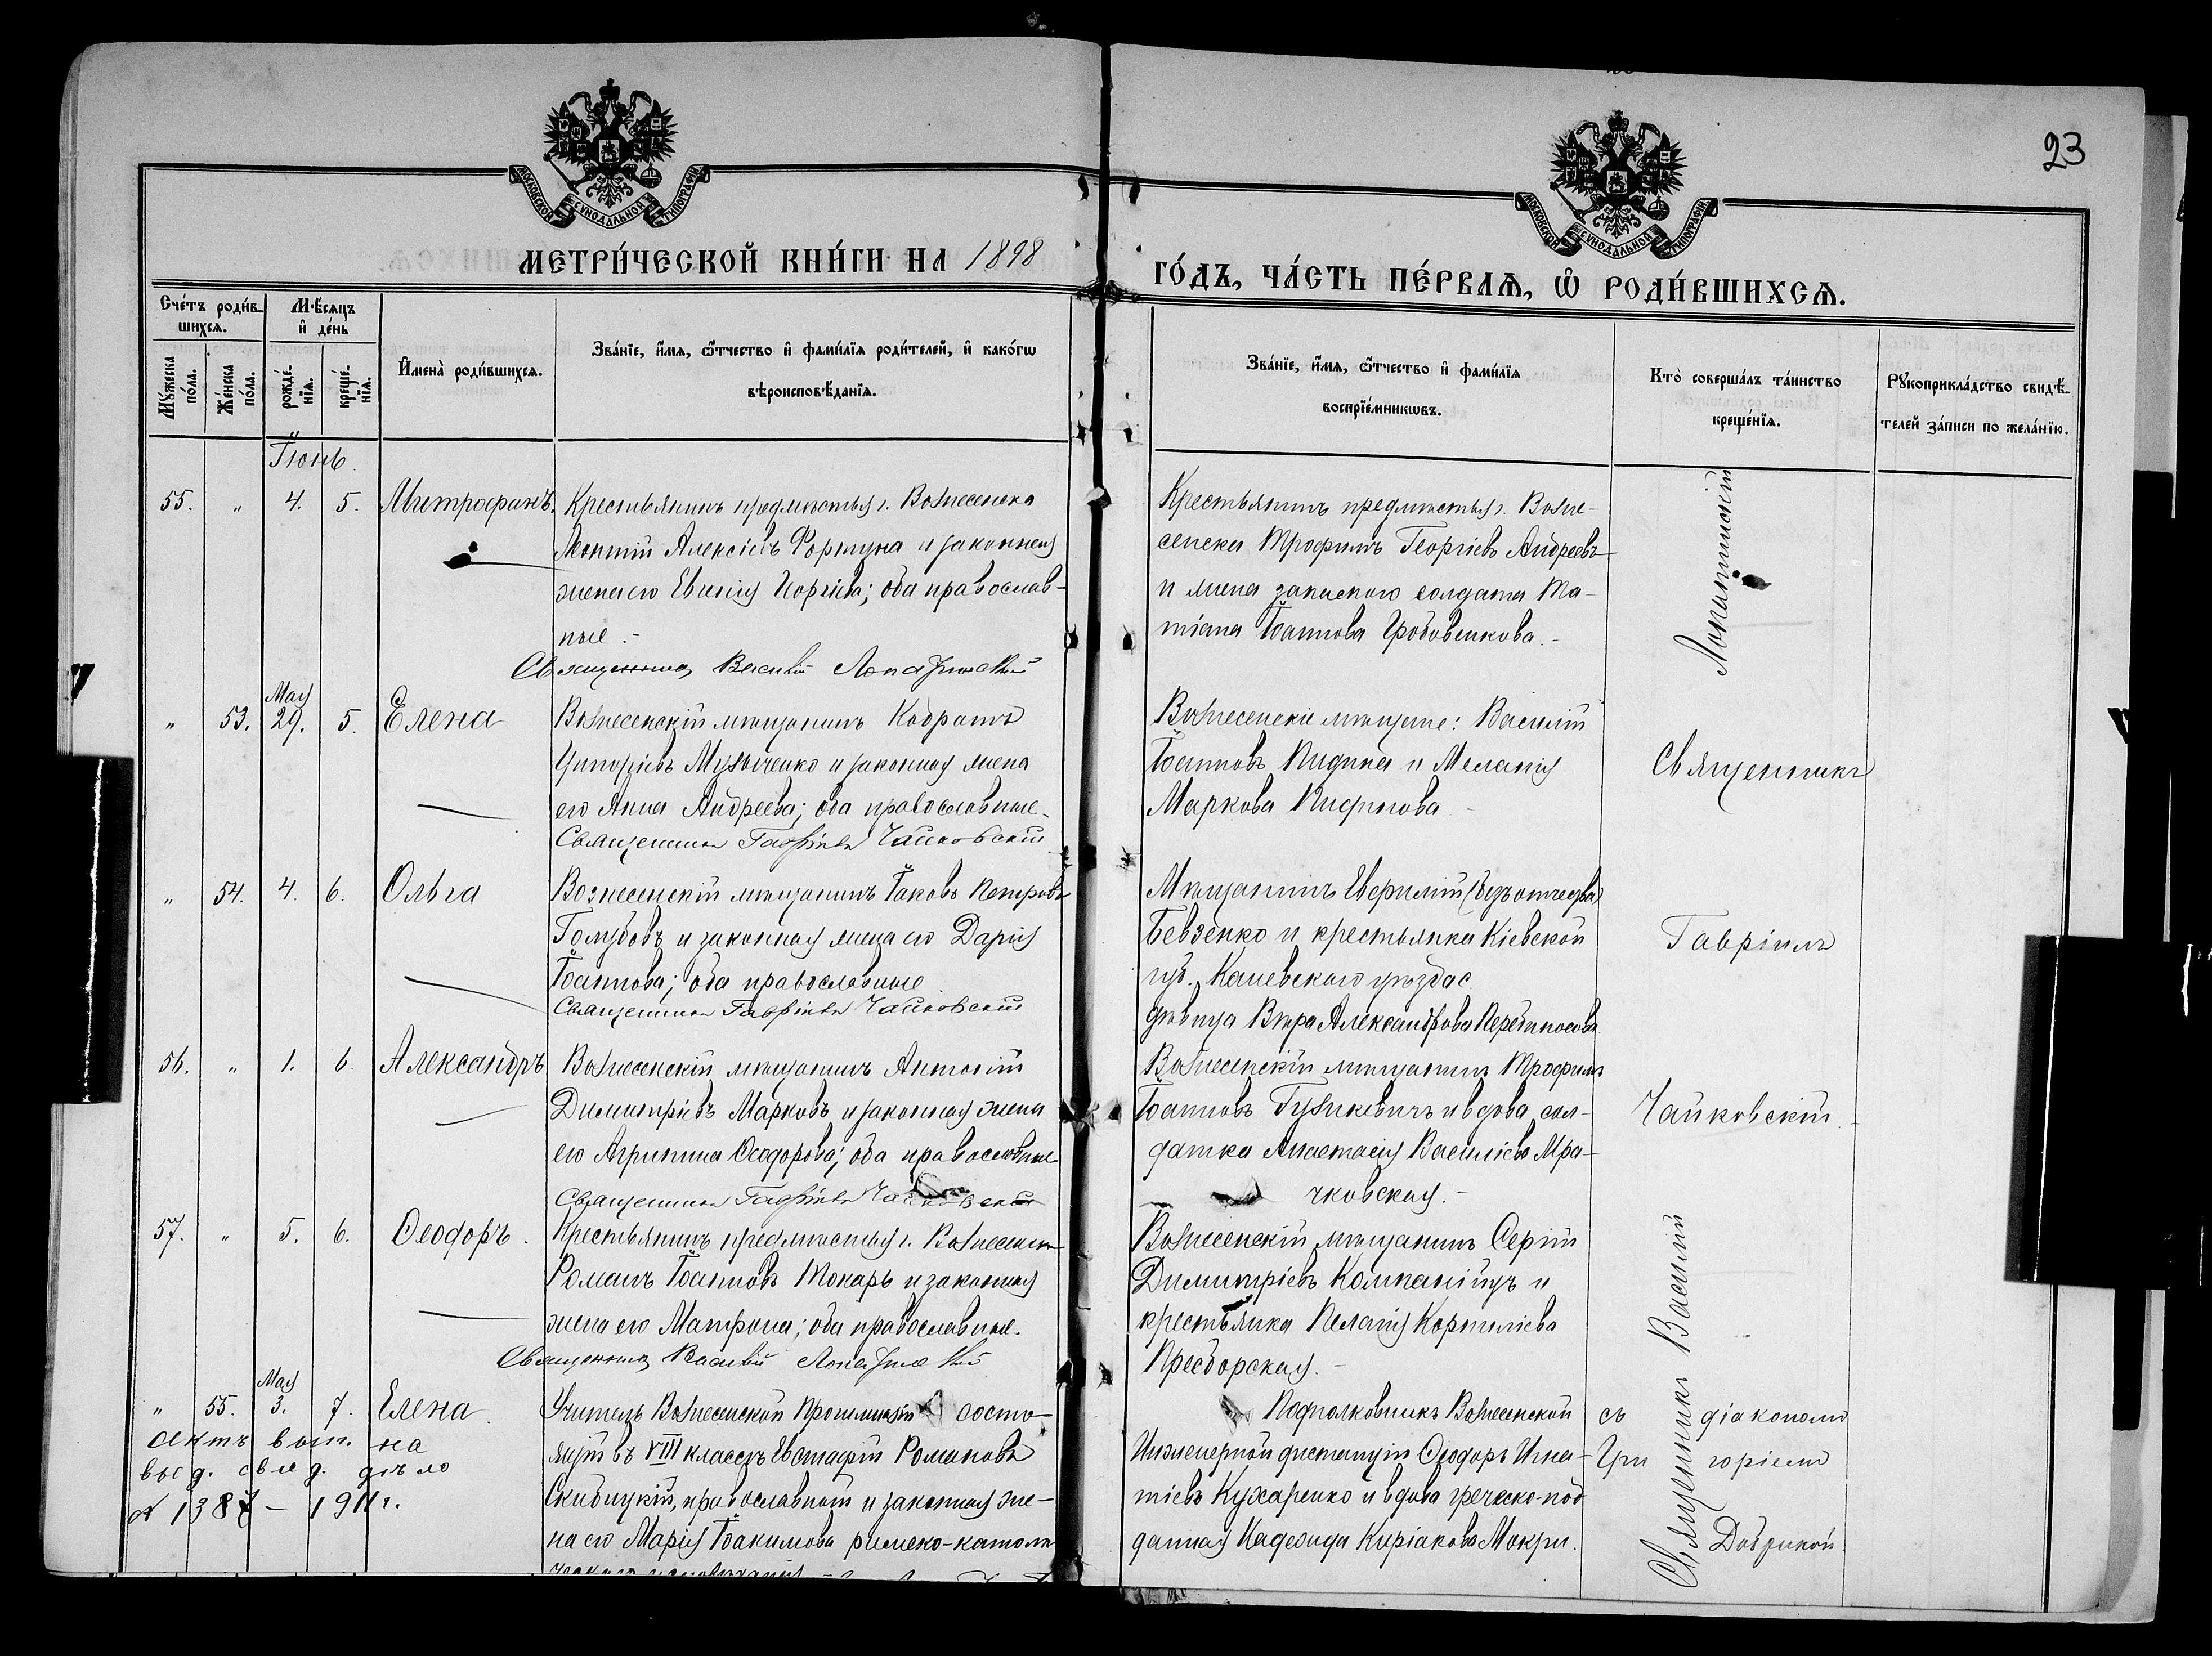 23
МОСКОВСКОЙ СУНОДАЛЬНОЙ ТИПОГРАФІИ
МОСКОВСКОЙ СУНОДАЛЬНОЙ ТИПОГРАФІИ
МЕТРИ́ЧЕСКОЙ КНИ́ГИ НА 1898
ГО́ДЪ, ЧА́СТЬ ПЕ́РВАѦ, Ѡ РОДИ́ВШИХСѦ.
Сче́тъ роди́вшихсѧ.
Мꙋ́жеска по́ла.
Же́нска по́ла.
Мѣ́сѧцъ и де́нь
рожде́нїѧ.
креще́нїѧ.
Имена̀ роди́вшихсѧ.
Зва́нїе, и́мѧ, ѻ́тчество и фами́лїѧ роди́телей, и како́гѡ
вѣроисповѣ́данїѧ.
Зва́нїе, и́мѧ, ѻ́тчество и фами́лїѧ
воспрїе́мникѡвъ.
Кто̀ соверша́лъ та́инство
креще́нїѧ.
Рꙋкоприкла́дство свидѣ́-
телей за́писи по жела́нїю.
Іюнь.
55. " 4. 5. Митрофанъ.
Крестьянинъ предмѣстья г. Вознесенска
Леонтій Алексіевъ Фортуна и законная
жена его Евгенія Игоріева; оба православ-
ные.-
Священникъ Василій Лопатинскій
Крестьянинъ предмѣстья г. Возне-
сенска Трофимъ Георгіевъ Андреевъ
и жена запаснаго солдата Та-
тіана Іоаннова Гробовенкова.-
Лопатинскій
" 53. Мая 29. 5. Елена
Вознесенскій мѣщанинъ Кодратъ
Григоріевъ Музыченко и законная жена
его Анна Андреева; оба православные.
Священникъ Гавріилъ Чайковскій
Вознесенскіе мѣщане: Василій
Іоанновъ Пидпка и Меланія
Маркова
Священникъ
" 54. 4. 6. Ольга
Вознесенскій мѣщанинъ Іаковъ Петровъ
Голубовъ и законная жена его Дарія
Іоаннова; оба православные
Священникъ Гавріилъ Чайковскій
Мѣщанинъ Евфимій (безъ отчества)
Бевзенко и крестьянка Кіевской
губ. Каневскаго уѣзда с.
дѣвица Вѣра Александрова Перебиносова
Гавріилъ
56. " 1. 6. Александръ
Вознесенскій мѣщанинъ Антоній
Димитріевъ Марковъ и законная жена
его Агрипина Ѳеодорова; оба православные
Священникъ Гавріилъ Чайковскій
Вознесенскій мѣщанинъ Трофимъ
Іоанновъ Гузикевичъ и вдова сол-
датка Анастасія Василіева Мра-
чковская.-
Чайковскій.-
57. " 5. 6. Ѳеодоръ.
Крестьянинъ предмѣстья г. Вознесенска
Романъ Іоанновъ Токарь и законная
жена его Матрона; оба православные.
Священникъ Василій Лопатинскій
Вознесенскій мѣщанинъ Сергій
Димитріевъ Компаніицъ и
крестьянка Пелагія Корниліева
Пресборская.-
Священникъ Василій
" 55. Мая 3. 7. Елена.
актъ вып. на
вы д. свѣд. дѣло
№ 1387 - 1911 г.
Учитель Вознесенской Прогимназіи состо-
ящій въ VIII классѣ Евстафій Романовъ
Скибицкій, православный и законная же-
на его Марія Іоакимова римско-католи-
ческаго исповѣданія -
Подполковникъ Вознесенской
Инженерной дистанціи Ѳеодоръ Игна-
тіевъ Кухаренко и вдова греческо-под
данная Надежда Киріакова Мокри.
съ діакономъ
Григоріемъ
Добрикой